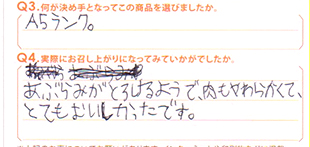 Q3.何が決め手となってこの商品を選びましたか。
A5ランク。
Q4.実際にお召し上がりになってみていかがでしたか。
あぶらみがとろけるようで、肉もやわらかくて、
とてもおいしかったです。